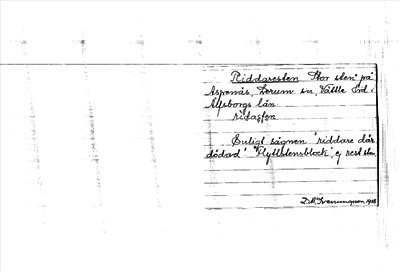 Riddaresten Stor sten på
Aspenäs, Lerum sn, Vättle hd.
Älfsborgs län.
Enligt sägnen "riddare där
dödad". Flyttstensblock, ej rest sten.
1918